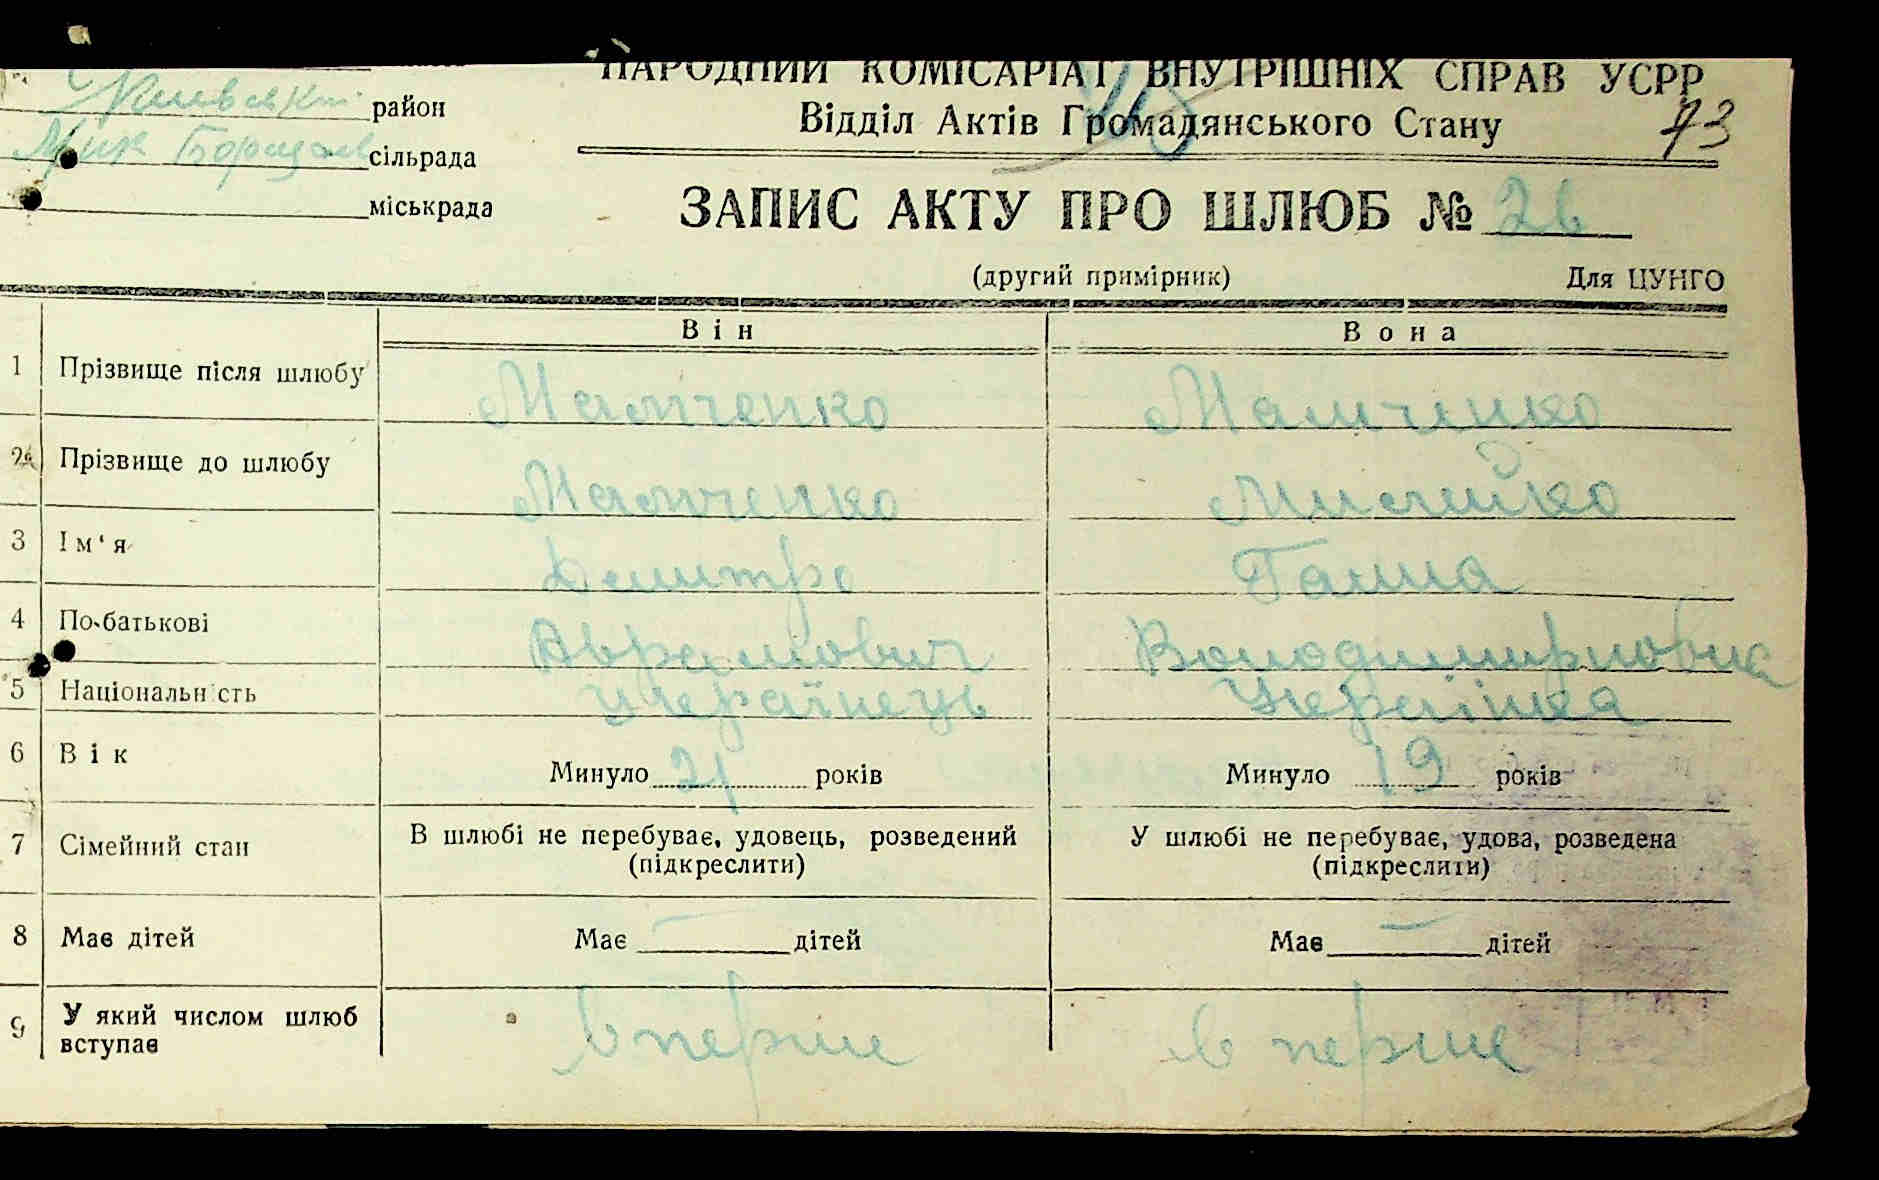 НАРОДНИЙ КОМІСАРІАТ ВНУТРІШНІХ СПРАВ УСРР
Київськ район
Відділ Актів Громадянського Стану 73
Мик Борщаг сільрада
міськрада
ЗАПИС АКТУ ПРО ШЛЮБ № 26
(другий примірник) Для ЦУНГО
Він Вона
1 Прізвище після шлюбу Мамченко Мамченко
2 Прізвище до шлюбу Мамченко
3 Ім'я Дмитро Ганна
4 По-батькові Аврамович Володимировна
5 Національність Українець Українка
6 Вік Минуло 21 років Минуло 19 років
7 Сімейний стан В шлюбі не перебуває, удовець, розведений (підкреслити) У шлюбі не перебуває, удова, розведена (підкреслити)
8 Має дітей Має — дітей Має — дітей
9 У який числом шлюб вступає вперше в перше